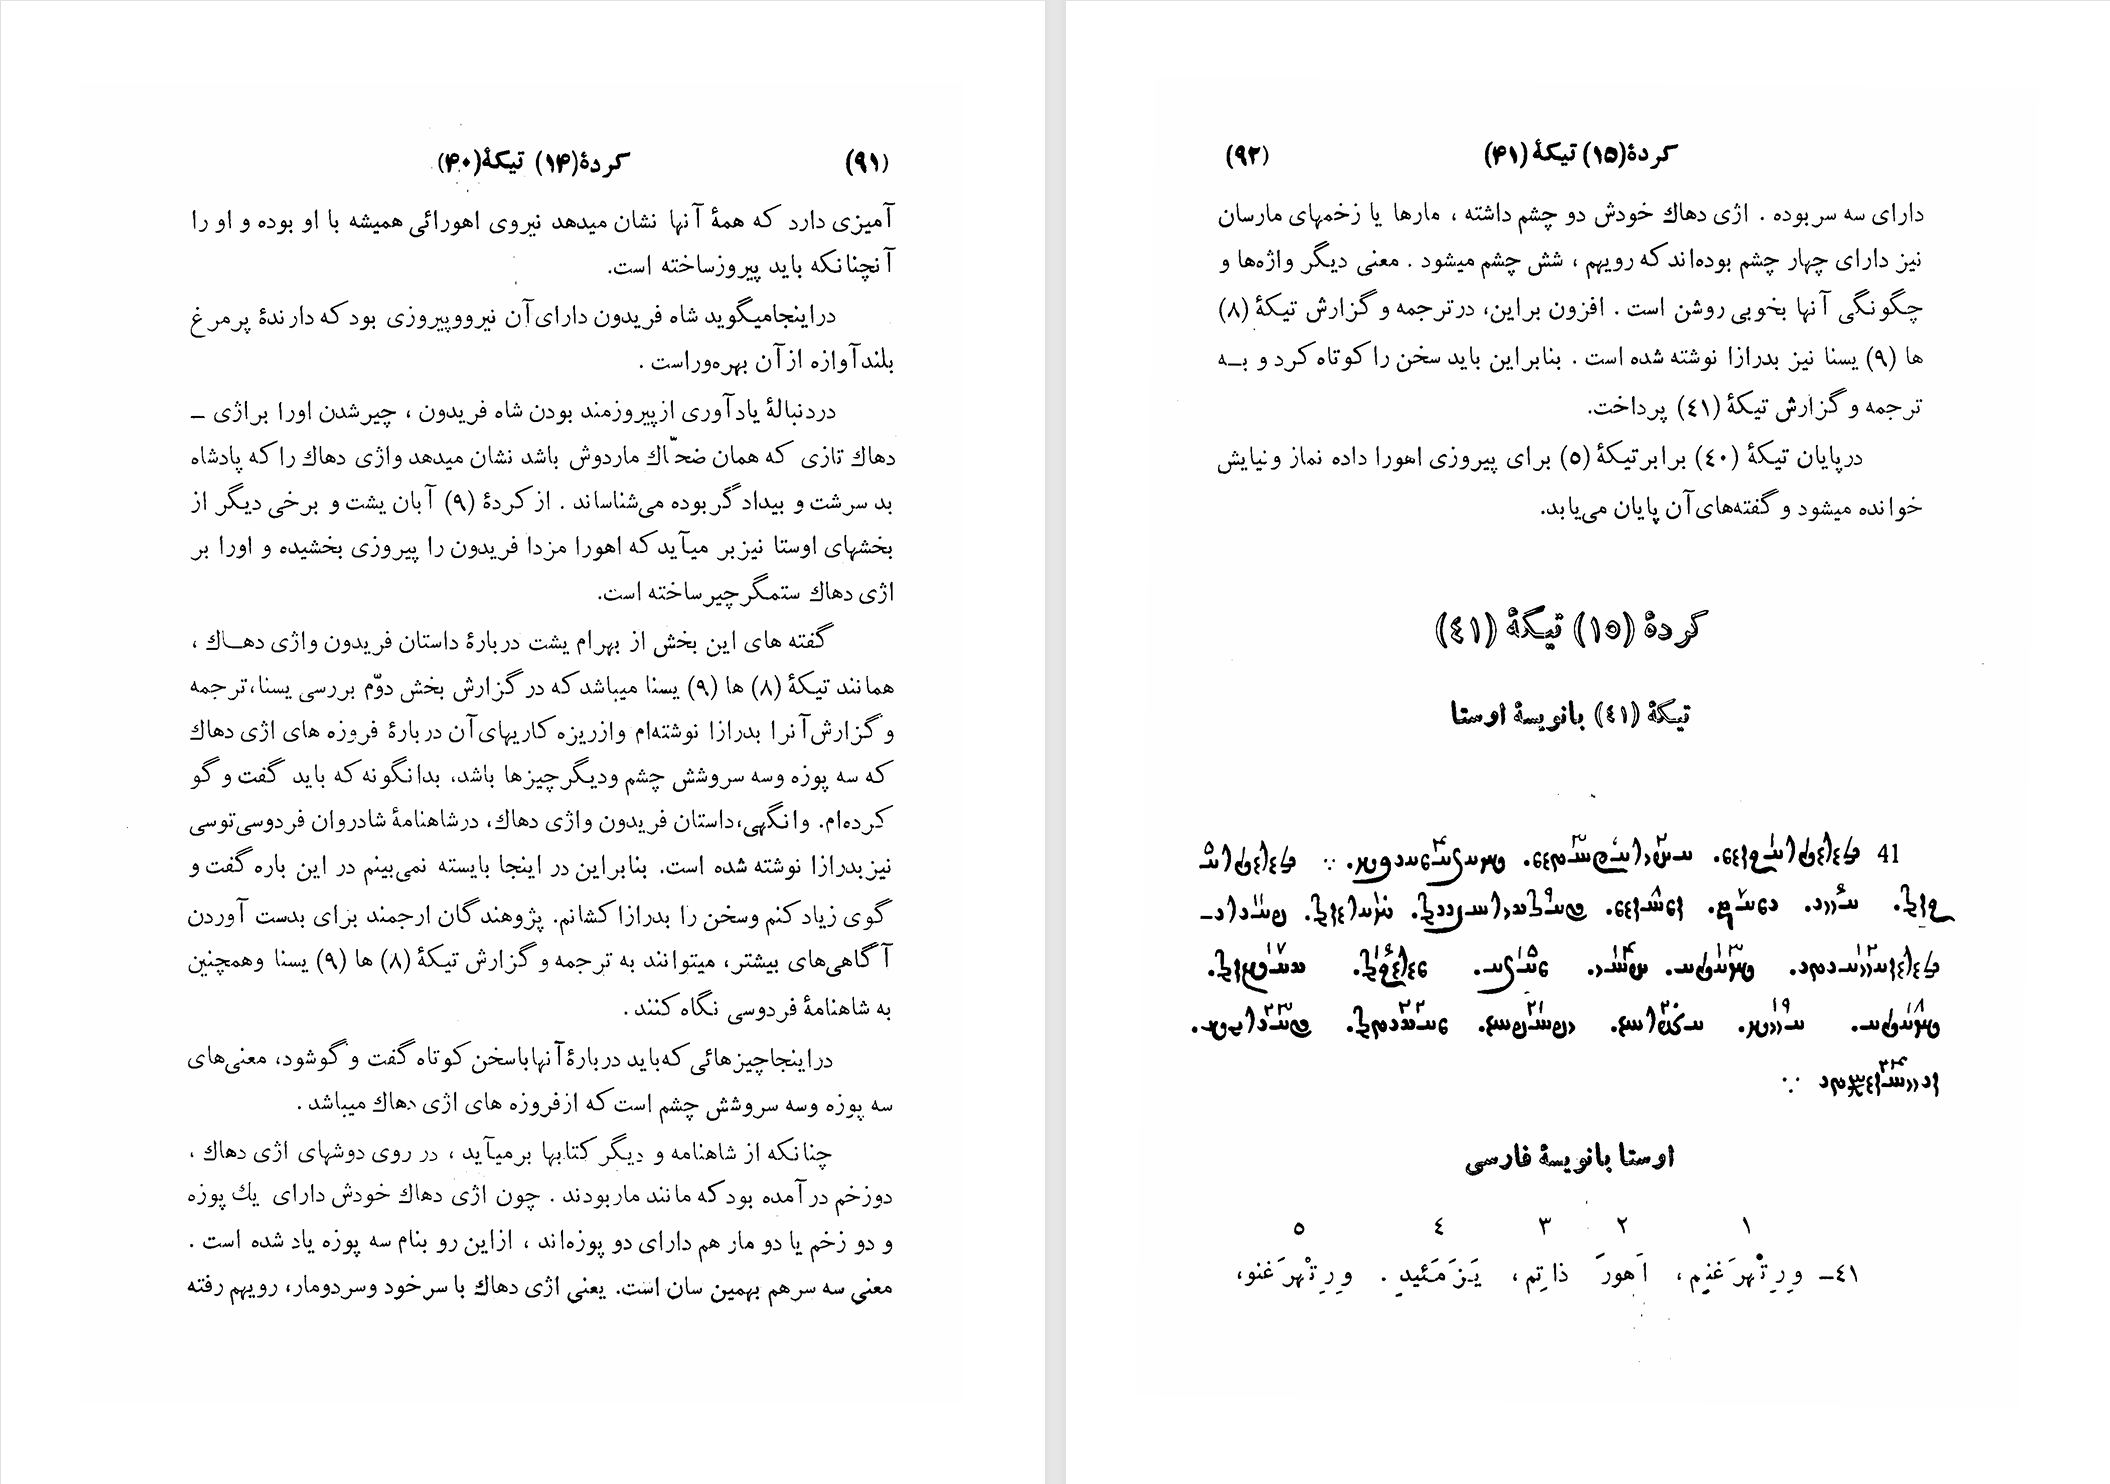 (۹۱) کردهٔ(۱۴) تیکهٔ(۴۰)
آمیزی دارد که همهٔ آنها نشان میدهد نیروی اهورائی همیشه با او بوده و او را
آنچنانکه باید پیروزساخته است.
دراینجامیگوید شاه فریدون دارای‌آن نیرووپیروزی بود که دارندهٔ پرمرغ
بلندآوازه ازآن بهره‌وراست .
دردنبالهٔ یادآوری ازپیروزمند بودن شاه فریدون ، چیرشدن اورا براژی ـ
دهاك تازی که همان ضحّاك ماردوش باشد نشان میدهد واژی دهاك را که پادشاه
بد سرشت و بیدادگربوده می‌شناساند . از کردهٔ (۹) آبان یشت و برخی دیگر از
بخشهای اوستا نیزبر میآید که اهورا مزدا فریدون را پیروزی بخشیده و اورا بر
اژی دهاك ستمگرچیرساخته است.
گفته های این بخش از بهرام یشت دربارهٔ داستان فریدون واژی دهــاك ،
همانند تیکهٔ (۸) ها (۹) یسنا میباشد که در گزارش بخش دوّم بررسی یسنا،ترجمه
و گزارش‌آنرا بدرازا نوشته‌ام وازریزه کاریهای‌آن دربارهٔ فروزه های اژی دهاك
که سه پوزه وسه سروشش چشم ودیگرچیزها باشد، بدانگونه که باید گفت و گو
کرده‌ام. وانگهی،داستان فریدون واژی دهاك، درشاهنامهٔ شادروان فردوسی‌توسی
نیزبدرازا نوشته شده است. بنابراین در اینجا بایسته نمی‌بینم در این باره گفت و
گوی زیاد کنم وسخن را بدرازا کشانم. پژوهندگان ارجمند برای بدست آوردن
آگاهی‌های بیشتر، میتوانند به ترجمه و گزارش تیکهٔ (۸) ها (۹) یسنا وهمچنین
به شاهنامهٔ فردوسی نگاه کنند .
دراینجاچیزهائی که‌باید دربارهٔ‌آنهاباسخن کوتاه گفت و گوشود، معنی‌های
سه پوزه وسه سروشش چشم است که ازفروزه های اژی دهاك میباشد .
چنانکه از شاهنامه و دیگر کتابها برمیآید ، در روی دوشهای اژی دهاك ،
دوزخم درآمده بود که مانند ماربودند . چون اژی دهاك خودش دارای یك پوزه
و دو زخم یا دو مار هم دارای دو پوزه‌اند ، ازاین رو بنام سه پوزه یاد شده است .
معنی سه سرهم بهمین سان است. یعنی اژی دهاك با سرخود وسردومار، رویهم رفته
کردهٔ(۱۵) تیکهٔ (۴۱) (۹۲)
دارای سه سربوده . اژی دهاك خودش دو چشم داشته ، مارها یا زخمهای مارسان
نیز دارای چهار چشم بوده‌اند که رویهم ، شش چشم میشود . معنی دیگر واژه‌ها و
چگونگی آنها بخوبی روشن است . افزون براین، درترجمه و گزارش تیکهٔ (۸)
ها (۹) یسنا نیز بدرازا نوشته شده است . بنابراین باید سخن را کوتاه کرد و بــه
ترجمه و گزارش تیکهٔ (٤۱) پرداخت.
درپایان تیکهٔ (٤۰) برابرتیکهٔ (۵) برای پیروزی اهورا داده نماز ونیایش
خوانده میشود و گفته‌های‌آن پایان می‌یابد.
کردهٔ (۱۵) تیکهٔ (٤۱)
تیکهٔ (٤۱) بانویسهٔ اوستا
41
اوستا بانویسهٔ فارسی
۱ ۲ ۳ ٤ ۵
٤۱ـ وِرِثْهرَغنِم، اَهورَ ذاتِم، یَزَمَئیدِ . وِرِثْهرَغنو،